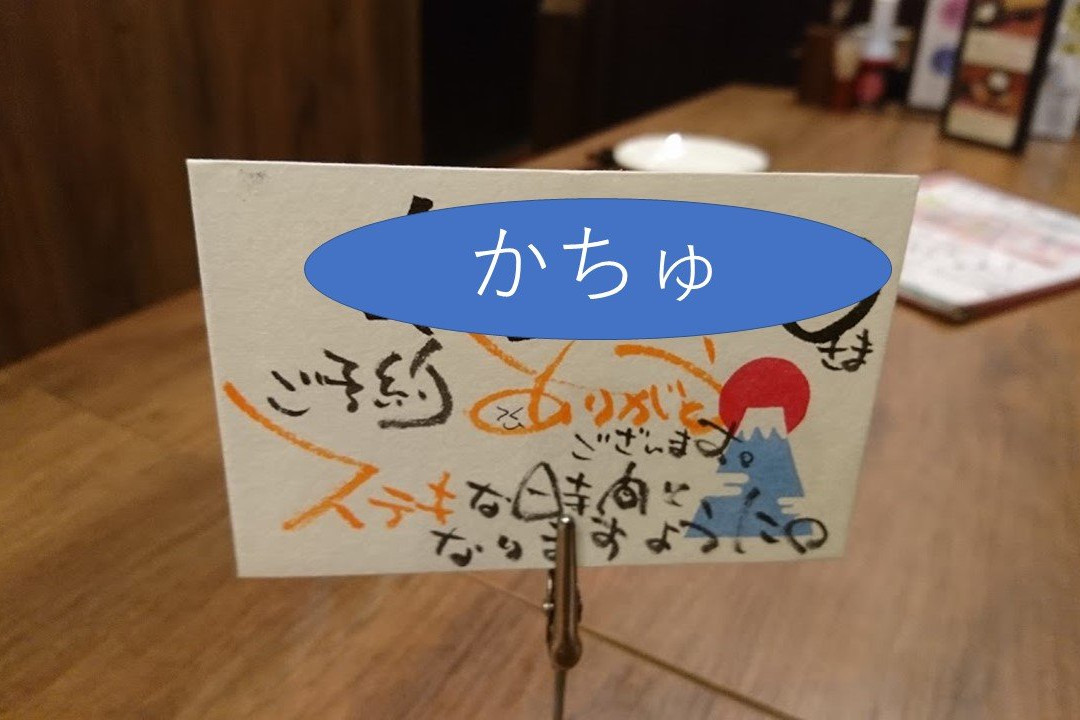 かちゅ
さま
ご予約
ありがとう
ございます。
ステキな時間に
なりますように